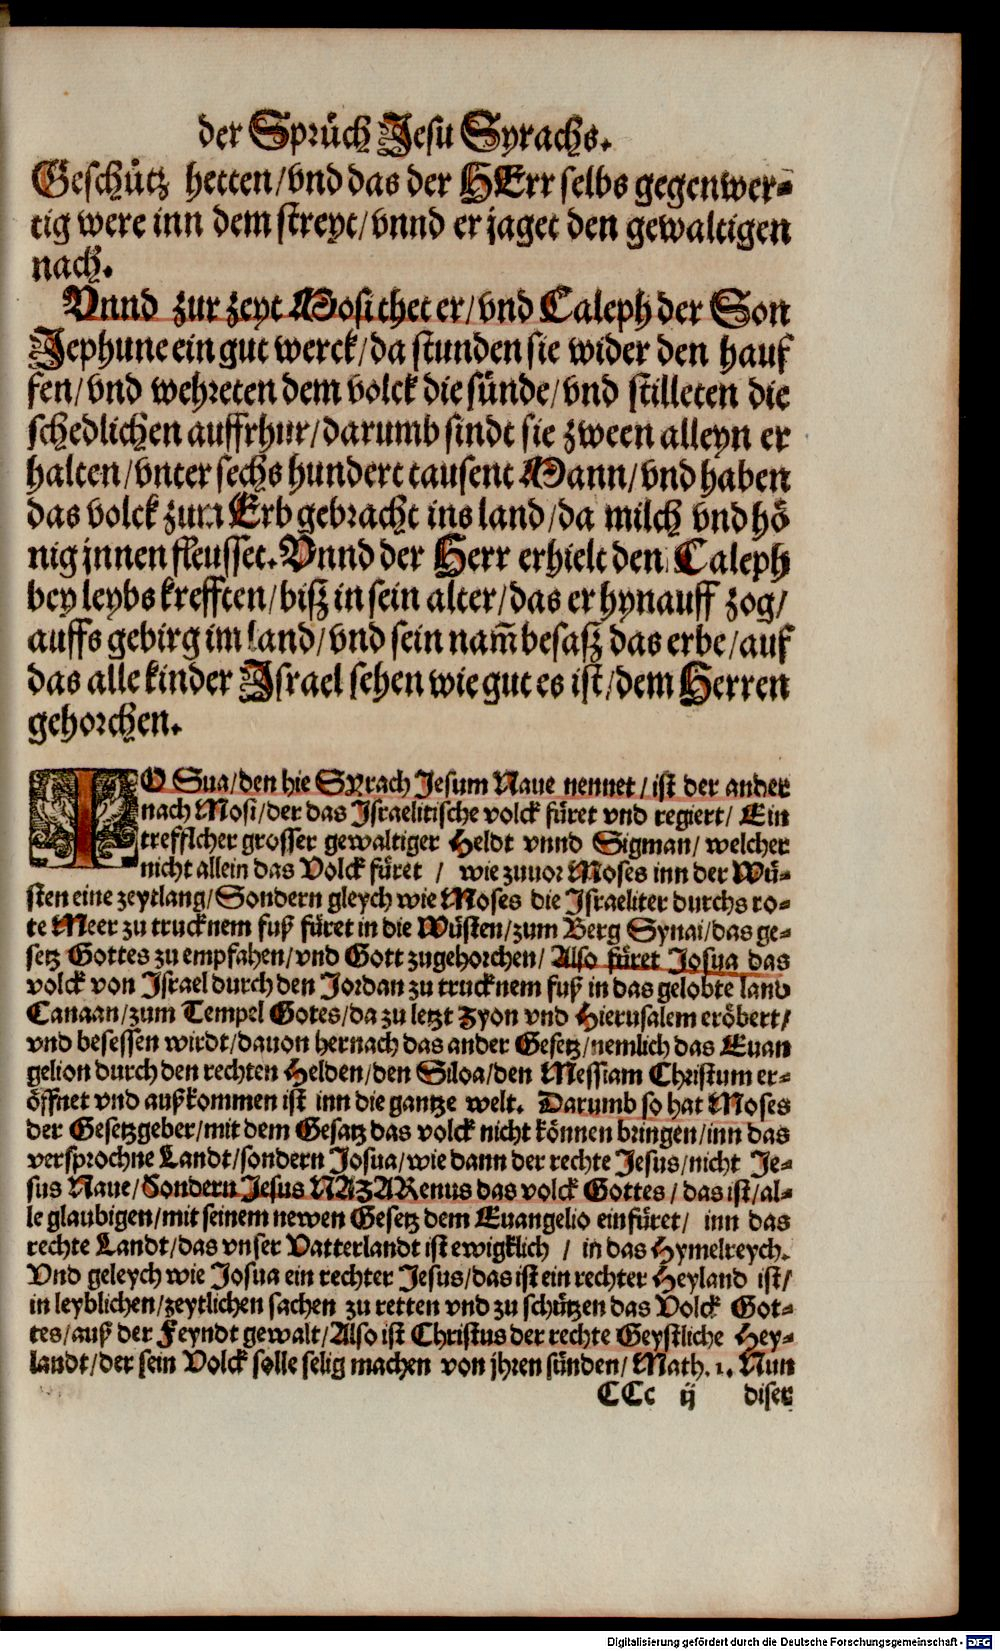 der Sprüch Jesu Syrachs.
Geschütz hetten/vnd das der HErr selbs gegenwer-
tig were inn dem streyt/vnnd er jaget den gewaltigen
nach.
Vnnd zur zeyt Mosi thet er/vnd Caleph der Son
Jephune ein gut werck/da stunden sie wider den hauf
fen/vnd wehreten dem volck die sünde/vnd stilleten die
schedlichen auffrhur/darumb sindt sie zween alleyn er
halten/vnter sechs hundert tausent Mann/vnd haben
das volck zum Erb gebracht ins land/da milch vnd hö
nig jnnen fleusset. Vnnd der Herr erhielt den Caleph
bey leybs krefften/bisz in sein alter/das er hynauff zog/
auffs gebirg im land/vnd sein nam̄ besasz das erbe/auf
das alle kinder Israel sehen wie gut es ist/dem Herren
gehorchen.
IO Sua/den hie SYrach Jesum Naue nennet/ist der ander
nach Mosi/der das Israelitische volck füret vnd regiert/ Ein
trefflcher grosser gewaltiger Heldt vnnd Sigman/welcher
nicht allein das Volck füret / wie zuuor Moses inn der Wü-
sten eine zeytlang/Sondern gleych wie Moses die Israeliter durchs ro-
te Meer zu trucknem fuß füret in die Wüsten/zum Berg Synai/das ge-
setz Gottes zu empfahen/vnd Gott zugehorchen/Also füret Josua das
volck von Israel durch den Jordan zu trucknem fuß in das gelobte land
Canaan/zum Tempel Gotes/da zu letzt Zyon vnd Hierusalem eröbert/
vnd besessen wirdt/dauon hernach das ander Gesetz/nemlich das Euan
gelion durch den rechten Helden/den Siloa/den Messiam Christum er-
öffnet vnd außkommen ist inn die gantze welt. Darumb so hat Moses
der Gesetzgeber/mit dem Gesatz das volck nicht können bringen/inn das
versprochne Landt/sondern Josua/wie dann der rechte Jesus/nicht Je-
sus Naue/Sondern Jesus NAZARenus das volck Gottes/das ist/al-
le glaubigen/mit seinem newen Gesetz dem Euangelio einfüret/ inn das
rechte Landt/das vnser Vatterlandt ist ewigklich / in das Hymelreych.
Vnd geleych wie Josua ein rechter Jesus/das ist ein rechter Heyland ist/
in leyblichen/zeytlichen sachen zu retten vnd zu schützen das Volck Got-
tes/auß der Feyndt gewalt/Also ist Christus der rechte Geystliche Hey-
landt/der sein Volck solle selig machen von jhren sünden/Math. 1. Nun
CCc ij diser
Digitalisierung gefördert durch die Deutsche Forschungsgemeinschaft - DFG